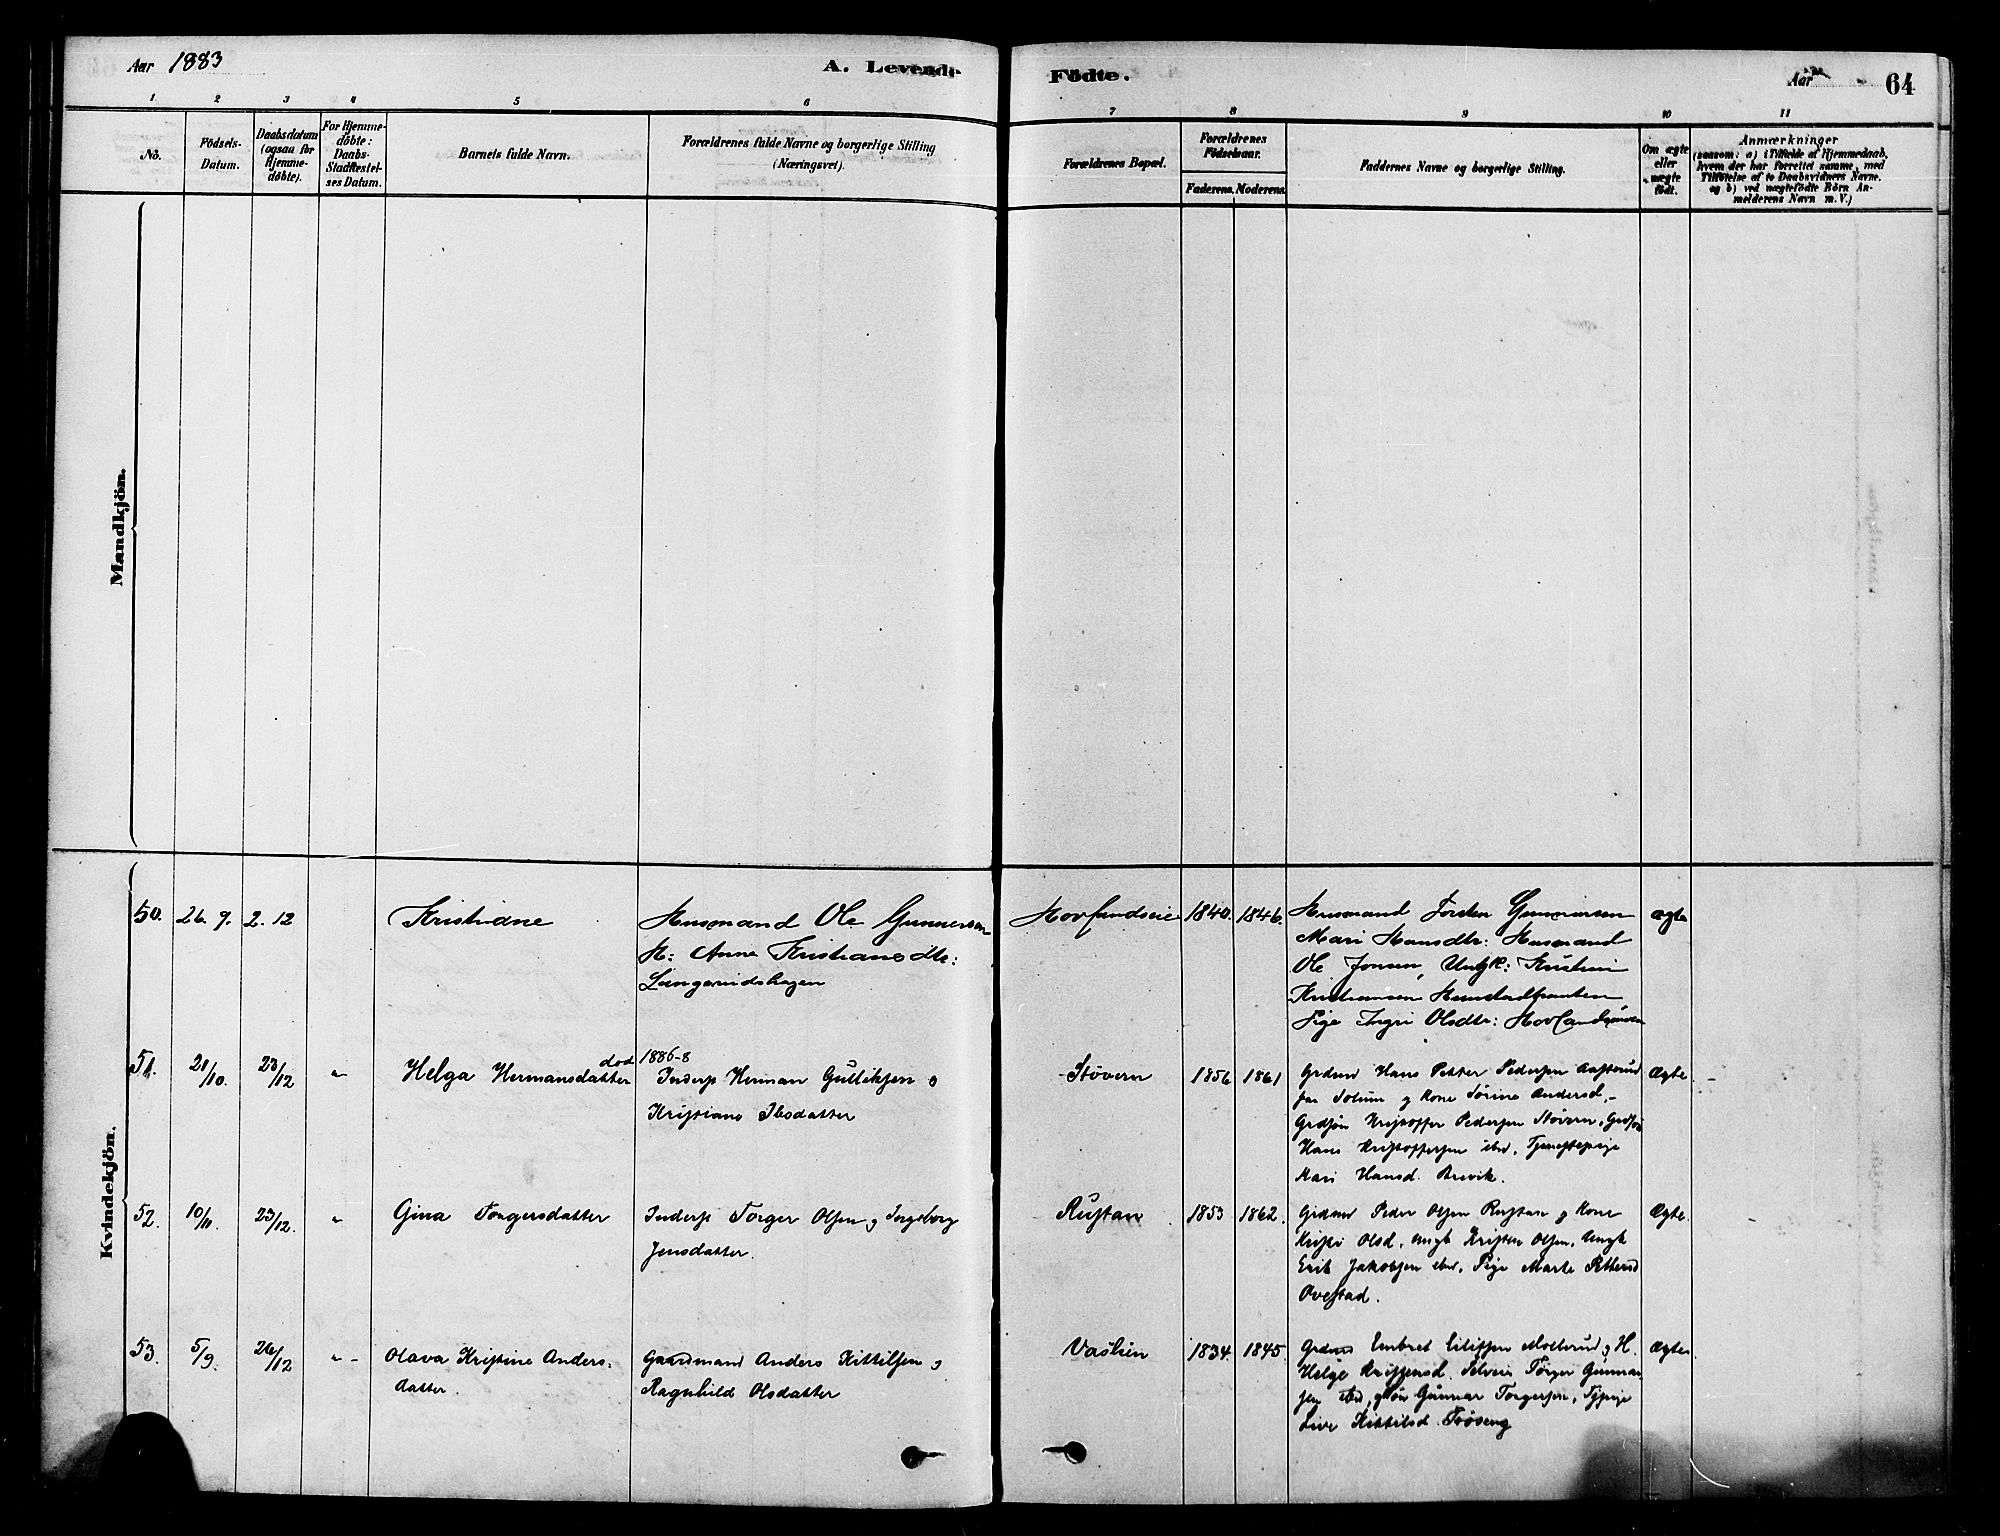 Aar 1883
A. Levende
Födte.
Aar
64
1. 2 3 4 5 6
7 8 9 10 11
No.
Födsels-
Datum.
Daabsdatum
(ogsaa for
Hjemme-
döbte).
For Hjemme-
döbte:
Daabs-
Stadfæstel-
ses Datum.
Barnets fulde Navn.
Forældrenes fulde Navne og borgerlige Stilling
(Næringsvei).
Forældrenes Bopæl.
Forældrenes
Födselsaar.
Faderens. Moderens.
Faddernes Navne og borgerlige Stilling.
Om ægte
eller
uægte
födt.
Anmærkninger
(saasom: a) i Tilfælde af Hjemmedaab,
hvem der har forrettet samme, med
Tilföielse af to Daabsvidners Navne.
og b) ved uægtefödte Börn An-
melderens Navn m. V.)
Mandkjön.
Kvindekjön.
50. 26. 9. 2. 12 Kristiane
Husmand Ole Gunnersen
H: Anne Kristiansdtr:
1840. 1846.
Husmand Torsten Gunnersen
Mari Hansdtr: Husmand
Ole Jonsen, Ungk:
Pige Ingri Olsdtr:
ægte
51. 21/10. 23/12 " Helga Hermansdatter död
1886-8
Inderst Herman Gulliksen og
Kristiane Ibsdatter
Støvern 1856 1861
Grdmd Hans Petter Pedersen
Solum og Kone Torine Andersd.
Grdsön Kristoffer Pedersen Støvern, Grdsön
Hans Kristoffersen ibd, Tjenestepige
Kari Hansd. Brevik.
Ægte
52. 10/10. 23/12. " Gina Torgersdatter
Inderst Torger Olsen og Ingeborg
Jensdatter.
Rustan 1853 1862.
Grdmd Peder Olsen Rustan og Kone
Kristi Olsd, Ungk Kristen Olsen, Ungk
Erik Jakobsen ibd, Pige Marte Pettersd
Ovestad.
Ægte.
53. 5/9. 26/12 " - Olava Kristine Anders-
datter.
Gaardmand Anders Kittilsen og
Ragnhild Olsdatter
Vaslien 1834. 1845.
Grdmd Embret Eilifsen Molterud og H.
Helge Torger Gunnar-
sen ibd, Gunnar Torgersen, Tjpige
Live Kittilsd. Trøseng
Ægte